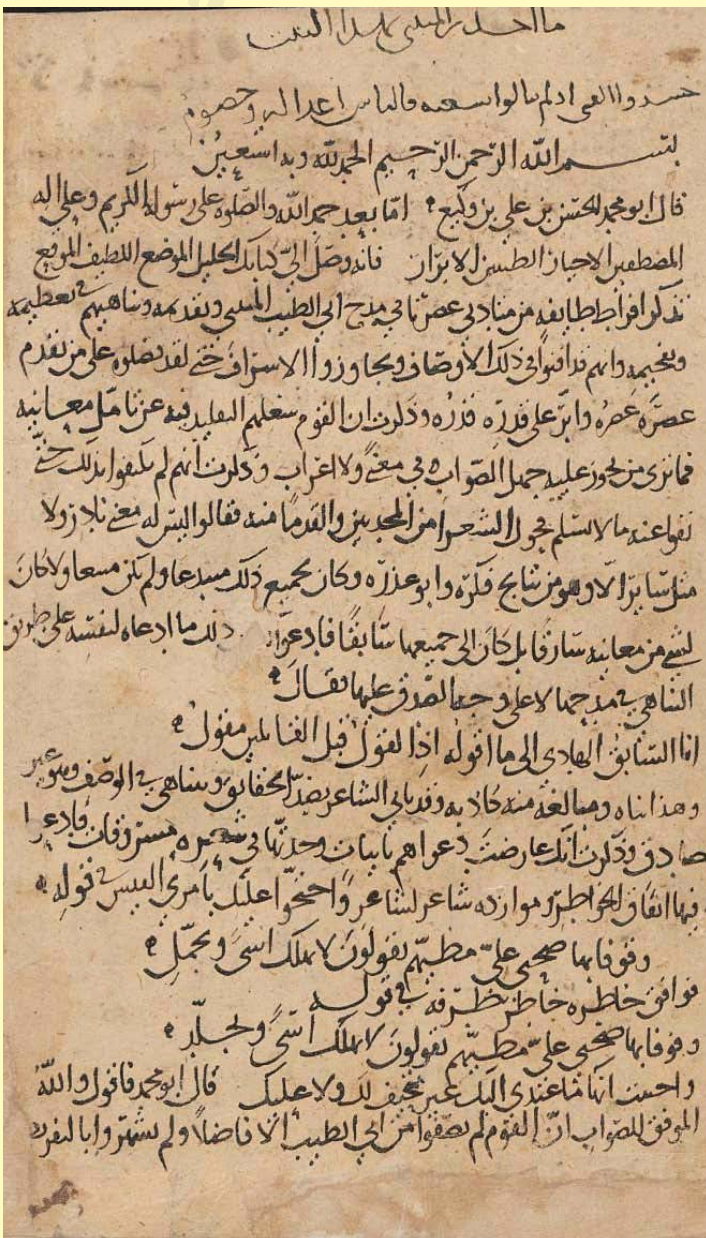 ما احد المتنبي بهذا البيت
حسدوا الفتى اذ لم ينالوا سعيه فالناس اعدا له وخصوم
بسم الله الرحمن الرحيم الحمد لله وبه استعين
قال ابو محمد الحسن بن علي بن وكيع اما بعد حمد الله والصلوة على رسوله الكريم وعلى اله
المصطفين الاخيار الطيبين الابرار فانه وصل الي كتابك الجليل الموضع اللطيف الموقع
تذكر افراط طايفه من متادبي عصرنا في مدح ابي الطيب المتنبي وتقديمه وتناهيهم في تعظيمه
وتفخيمه وانهم قد افنوا في ذلك الاوصاف وتجاوزوا الاسراف حتى لقد فضلوه على من تقدم
عصره عصره وابر على قدره قدره وذكرت ان القوم شغلهم التقليد فيه عن تامل معانيه
فما ترى من يجوز عليه جهل الصواب في معنى ولا اعراب وذكرت انهم لم يكتفوا بذلك حتى
نفوا عنه ما لا يسلم فحول الشعرا من المحدثين والقدما منه فقالوا ليس له معنى نادر ولا
مثل ساير الا وهو من نتايج فكره وابو عذره وكان بجميع ذلك مبتدعا ولم يكن متبعا ولا كان
لشي من معانيه سارقا بل كان الى جميعها سابقا فادعوا له ذلك ما ادعاه لنفسه على طريق
التناهي في مدحها لا على وجه الصدق عليها فقال
انا السابق الهادي الى ما اقوله اذ القول قبل القائلين مقول
وهذا تناه ومبالغة منه كاذبه وقد ياتي الشاعر بضد الحقائق ويتناهى في الوصف وهو غير
صادق وذكرت انك عارضت دعواهم بابيات وجدتها في شعره مسروقات فادعوا
فيها اتفاق الخواطر ومواردة شاعر لشاعر واحتجوا عليك بامرئ القيس في قوله
وقوفا بها صحبي علي مطيهم يقولون لا تهلك اسى وتجمل
فوافق خاطره خاطر طرفه في قوله
وقوفا بها صحبي علي مطيهم يقولون لا تهلك اسى وتجلد
واحببت انهاء ما عندي اليك غير متحيف لك ولا عليك قال ابو محمد فاقول والله
الموفق للصواب ان القوم لم يصفوا من ابي الطيب الا فاضلا ولم يشهروا بالتفريط